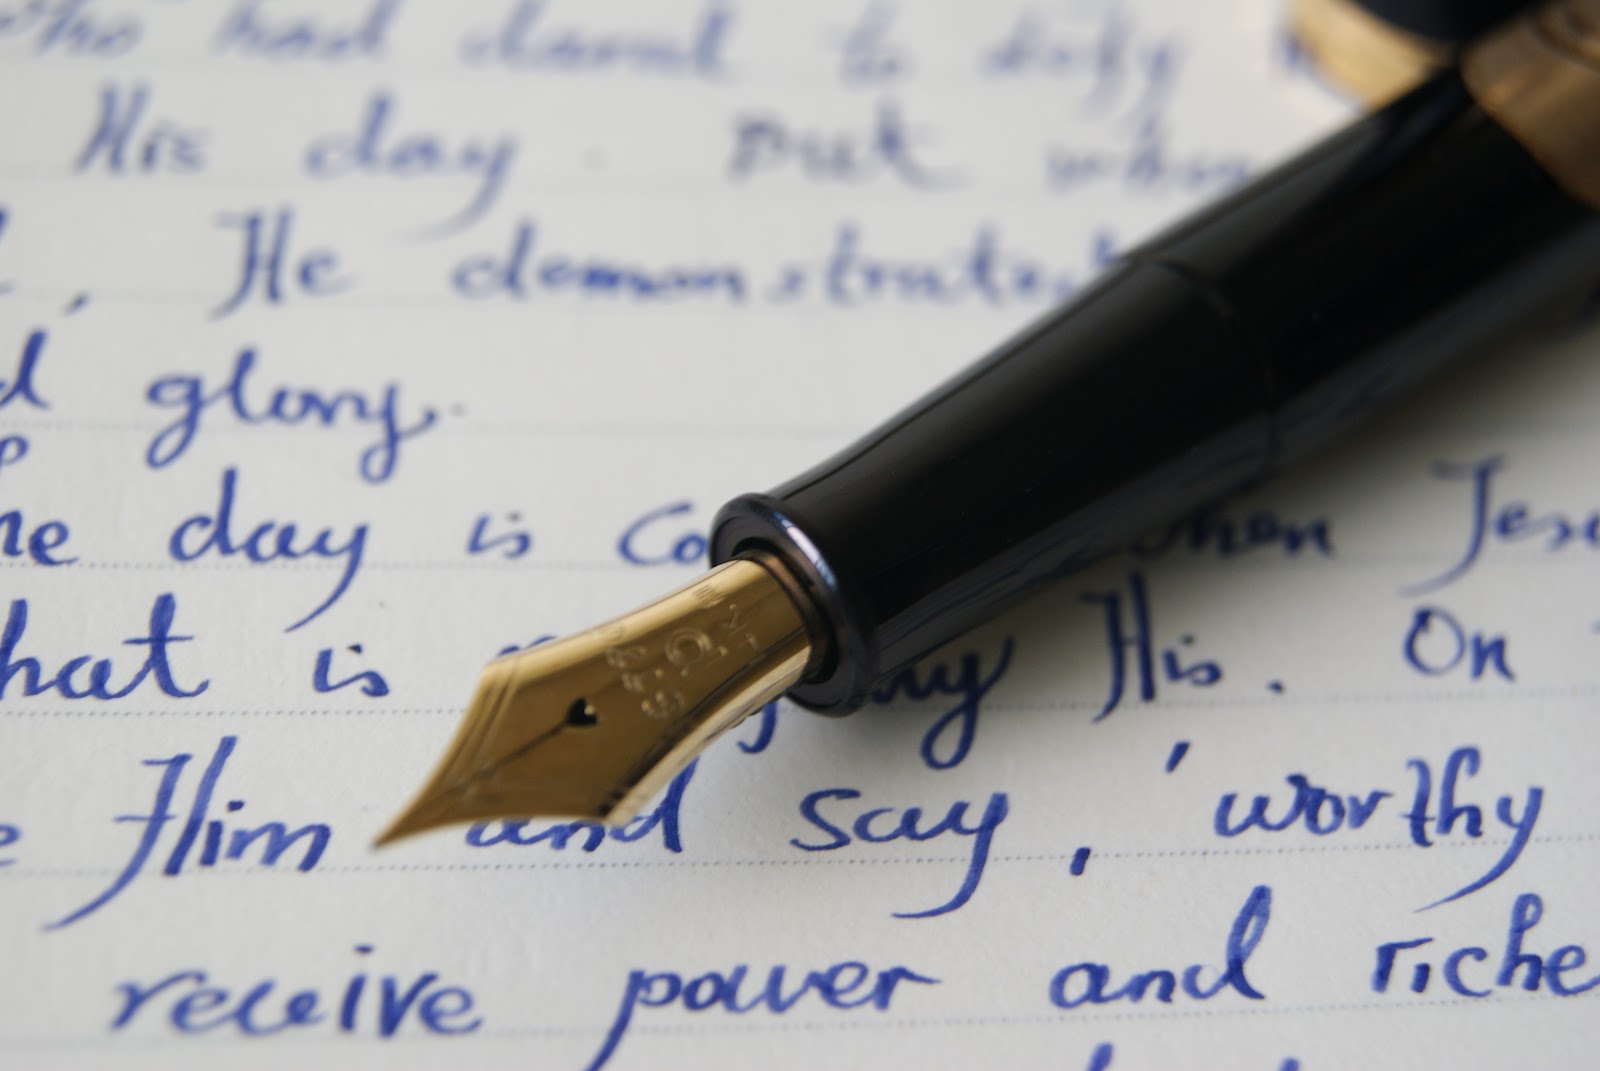 who had dared to defy
His day. But when
, He demonstrated
d glory.
he day is co when Jesu
hat is His. On
e Him and say, 'worthy
receive power and riche